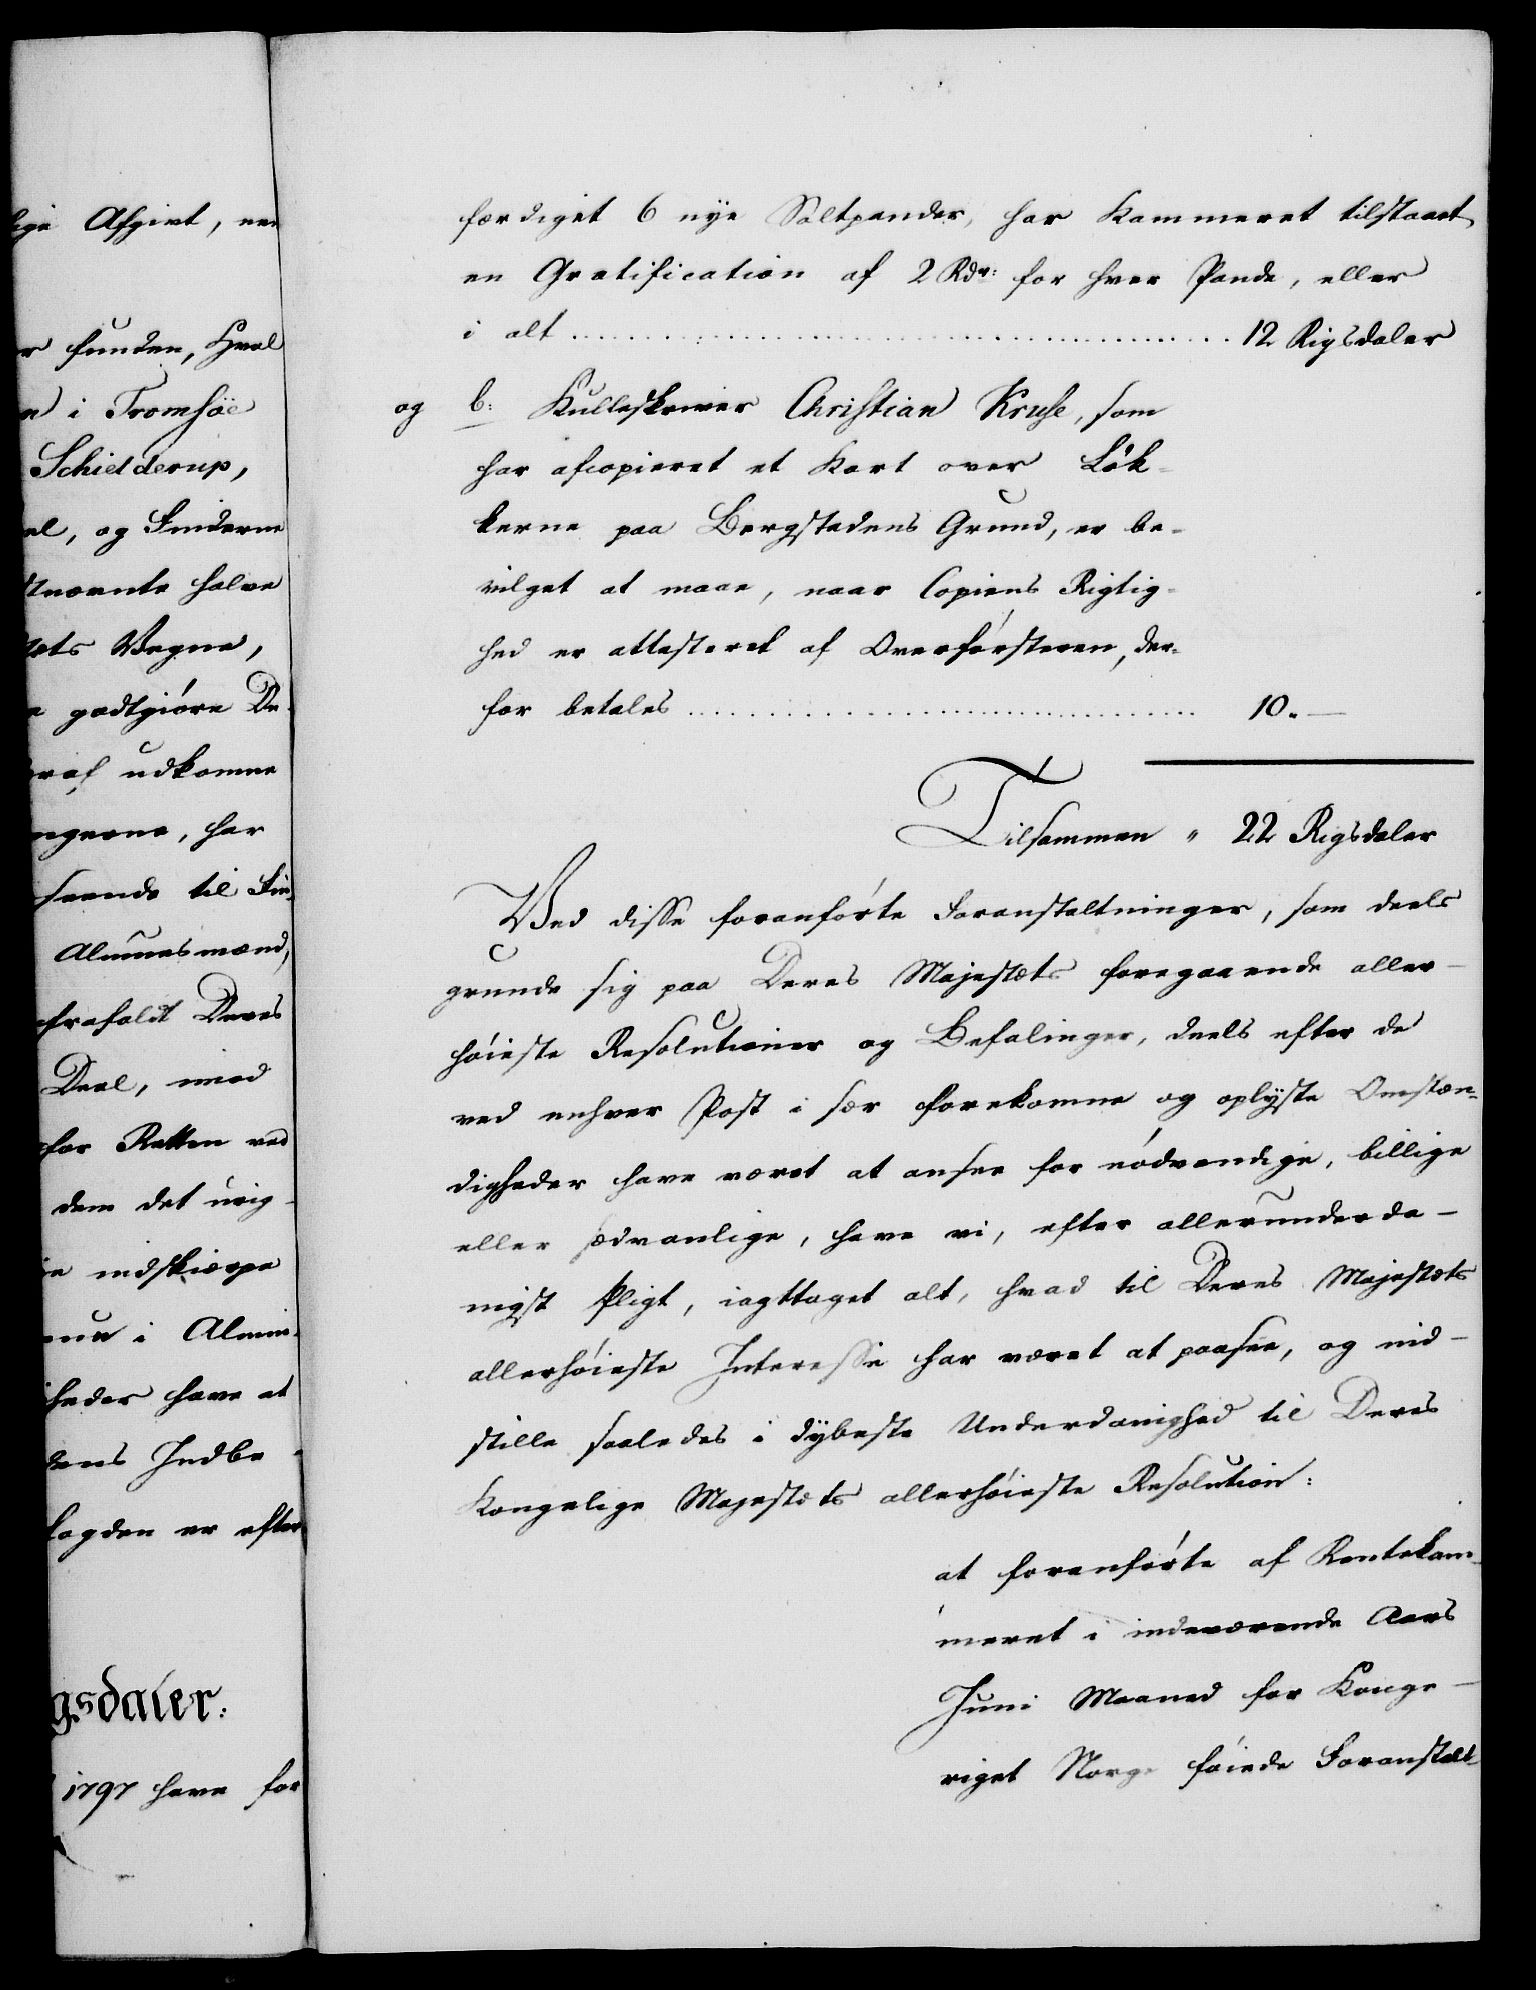 lige Afgivt, nen
r funden, Hval
n i Tromsöe
Schielderup,
el, og Finderne
tnævnte halve
tets Vegne,
e godtgiöre De-
raf udkomne
ngerne, har
seende til Fin-
Almuesmænd,
frafaldt Deres
Deel, imod
for Retten ved
dem det urig-
e indskiærpe
nun i Almin-
heder have at
dens Indbe-
fogden er efter
gsdaler:
1797 have for
færdiget 6 nye Saltpander, har Kammeret tilstaaet
en Gratification af 2 Rdr: for hver Pande, eller
i alt ........................................ 12 Rigsdaler
og b: Kulleskriver Christian Kruse, som
har afcopieret et Kart over Lök-
kerne paa Bergstadens Grund, er be-
vilget at maae, naar Copiens Rigtig-
hed er attesteret af Overförsteren, der-
for betales .............................. 10.—
Tilsammen " 22 Rigsdaler
Ved disse foranförte Foranstaltninger, som deels
grunde sig paa Deres Majestæts foregaaende aller-
höieste Resolutioner og Befalinger, deels efter de
ved enhver Post i sær forekomne og oplyste Omstæn-
digheder have været at ansee for nödvendige, billige
eller sædvanlige, have vi, efter allerunderda-
nigst Pligt, iagttaget alt, hvad til Deres Majestæts
allerhöieste Interesse har været at paasee, og ind-
stille saaledes i dybeste Underdanighed til Deres
Kongelige Majestæts allerhöieste Resolution:
at foranförte af Rentekam-
meret i indeværende Aars
Juni Maaned for Konge-
riget Norge föiede Foranstalt-